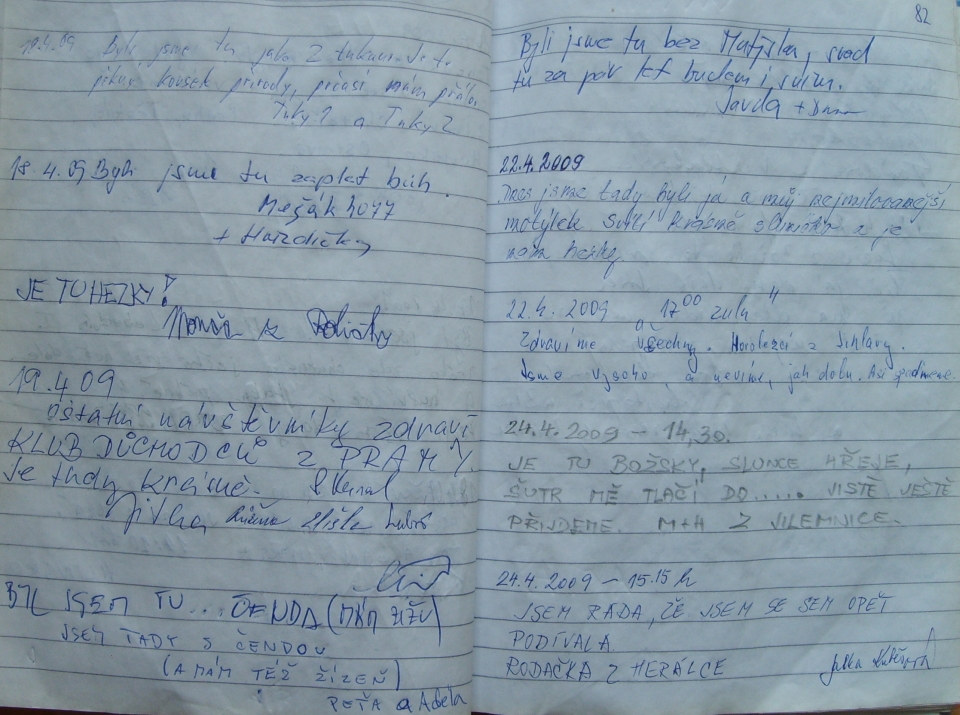 19.4.09 Byli jsme tu jako 2
kousek přírody, počasí mám přálo
Tuky 1 a Tuky 2
18.4.09 Byli jsme tu zaplat bůh.
Mešák 4077
+ Harzdičky
JE TU HEZKY!
z
19.4 09
Ostatní návštěvníky zdraví
KLUB DŮCHODCŮ z PRAHY.
Je tady krásně.
Jiřka Růžena Luboš
BYL JSEM TU... ČENDA (MÁM ŽÍZU)
JSEM TADY S ČENDOU
(A MÁM TÉŽ ŽÍZEŇ)
PEŤA a Adéla
82
Byli jsme tu bez Matýska, snad
tu za pár let budem i s ním.
22.4.2009
Dnes jsme tady byli já a můj nejmilovanější
motýlek svítí krásně sluníčko a je
nám hezky
22.4.2009 17 00 zulu"
Zdravíme všechny. Horolezci z Jihlavy.
Jsme vysoko, a nevíme, jak dolu. Asi spadneme.
24.4.2009 - 14,30.
JE TU BOŽSKY, SLUNCE HŘEJE,
ŠUTR MĚ TLAČÍ DO..... JISTĚ JEŠTĚ
PŘIJDEME. M+H Z JILEMNICE.
24.4.2009 - 15.15 h
JSEM RÁDA, ŽE JSEM SE SEM OPĚT
PODÍVALA
RODAČKA Z HERÁLCE